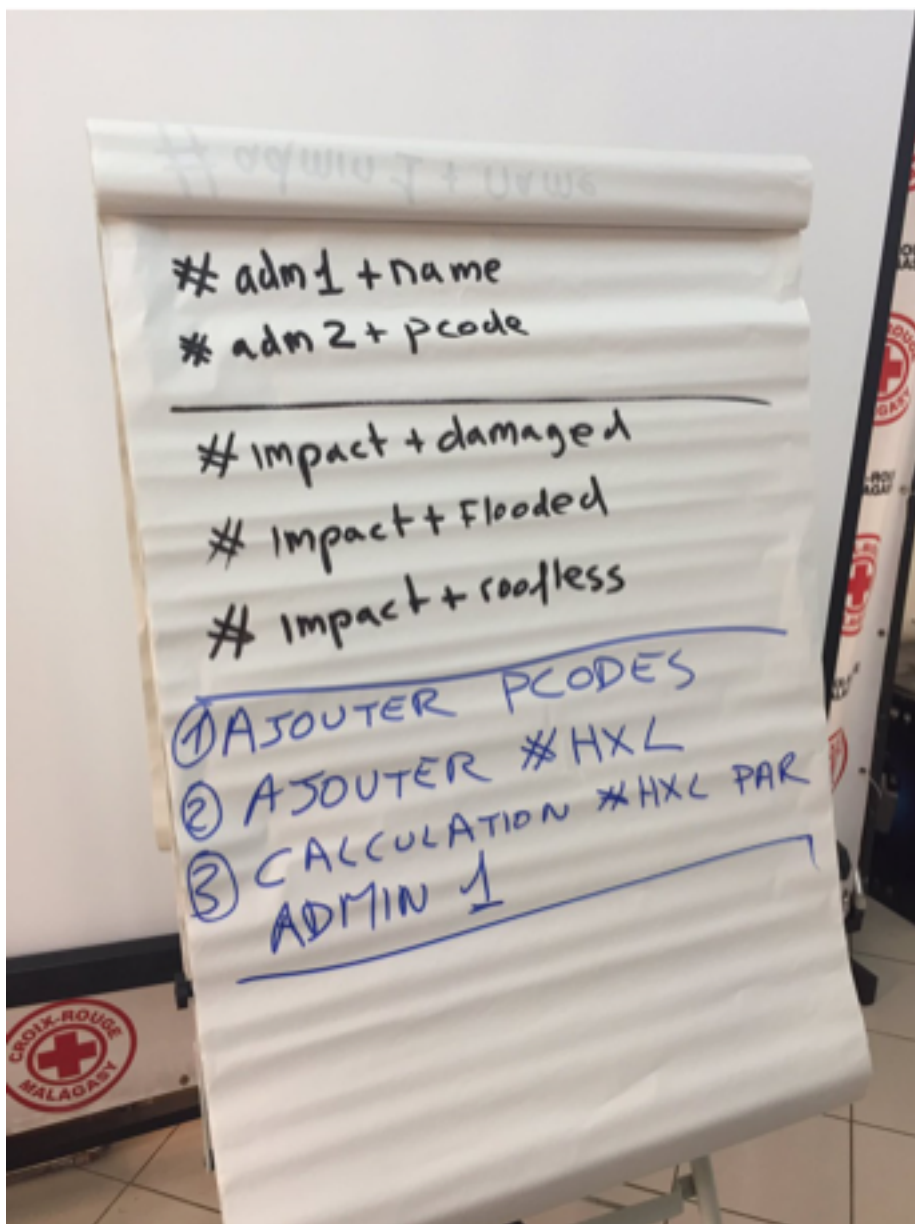 # admin 1 + name
# adm1 + name
# adm2 + pcode
# impact + damaged
# Impact + Flooded
# Impact + roofless
① AJOUTER PCODES
② AJOUTER #HXL
③ CALCULATION #HXL PAR
ADMIN 1
CROIX-ROUGE
MALAGASY